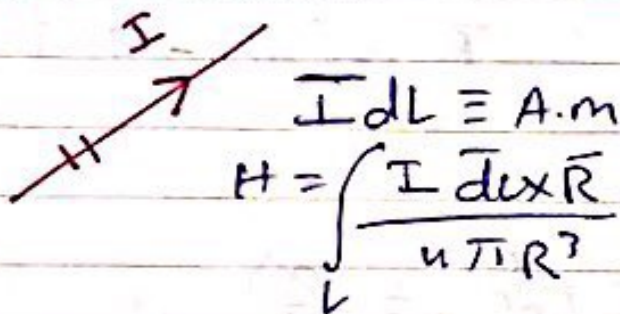 I
I̅ dL ≡ A.m
H = ∫_L (I d̅L x R̅) / (4πR³)